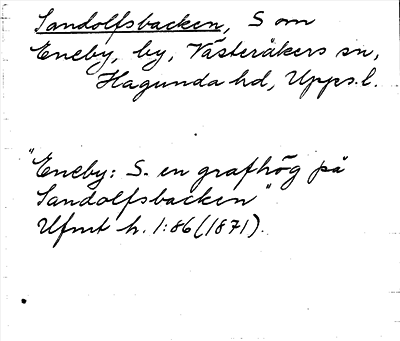 Sandolfsbacken, S om
Eneby, by, Västeråkers sn,
Hagunda hd, Upps. l.
"Eneby: S. en grafhög på
Sandolfsbacken"
Ufmt h. 1:86 (1871).